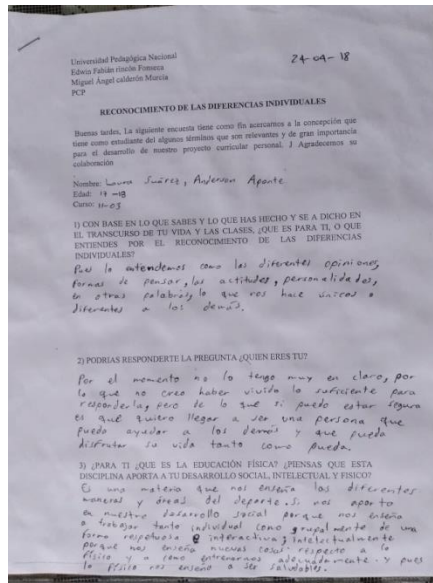 Universidad Pedagógica Nacional
Edwin Fabián rincón Fonseca
Miguel Ángel calderón Murcia
PCP
24-04-18
RECONOCIMIENTO DE LAS DIFERENCIAS INDIVIDUALES
Buenas tardes, La siguiente encuesta tiene como fin acercarnos a la concepción que
tiene como estudiante del algunos términos que son relevantes y de gran importancia
para el desarrollo de nuestro proyecto curricular personal. J Agradecemos su
colaboración
Nombre: Laura Suárez, Anderson Aponte
Edad: 17 - 18
Curso: 11-03
1) CON BASE EN LO QUE SABES Y LO QUE HAS HECHO Y SE A DICHO EN
EL TRANSCURSO DE TU VIDA Y LAS CLASES, ¿QUE ES PARA TI, O QUE
ENTIENDES POR EL RECONOCIMIENTO DE LAS DIFERENCIAS
INDIVIDUALES?
Pues lo entendemos como las diferentes opiniones,
formas de pensar, las actitudes, personalidades,
en otras palabras, lo que nos hace únicos o
diferentes a los demás.
2) PODRIAS RESPONDERTE LA PREGUNTA ¿QUIEN ERES TU?
Por el momento no lo tengo muy en claro, por
lo que no creo haber vivido lo suficiente para
responderla, pero de lo que si puedo estar segura
es que quiero llegar a ser una persona que
pueda ayudar a los demás y que pueda
disfrutar su vida tanto como pueda.
3) ¿PARA TI ¿QUE ES LA EDUCACIÓN FÍSICA? ¿PIENSAS QUE ESTA
DISCIPLINA APORTA A TU DESARROLLO SOCIAL, INTELECTUAL Y FISICO?
Es una materia que nos enseña las diferentes
maneras y áreas del deporte. Si nos aporta
en nuestro desarrollo social porque nos enseña
a trabajar tanto individual como grupalmente de una
forma respetuosa e interactiva; intelectualmente
porque nos enseña nuevas cosas respecto a lo
físico y a como entrenarnos adecuadamente. y pues
lo físico nos enseña a ser saludables.